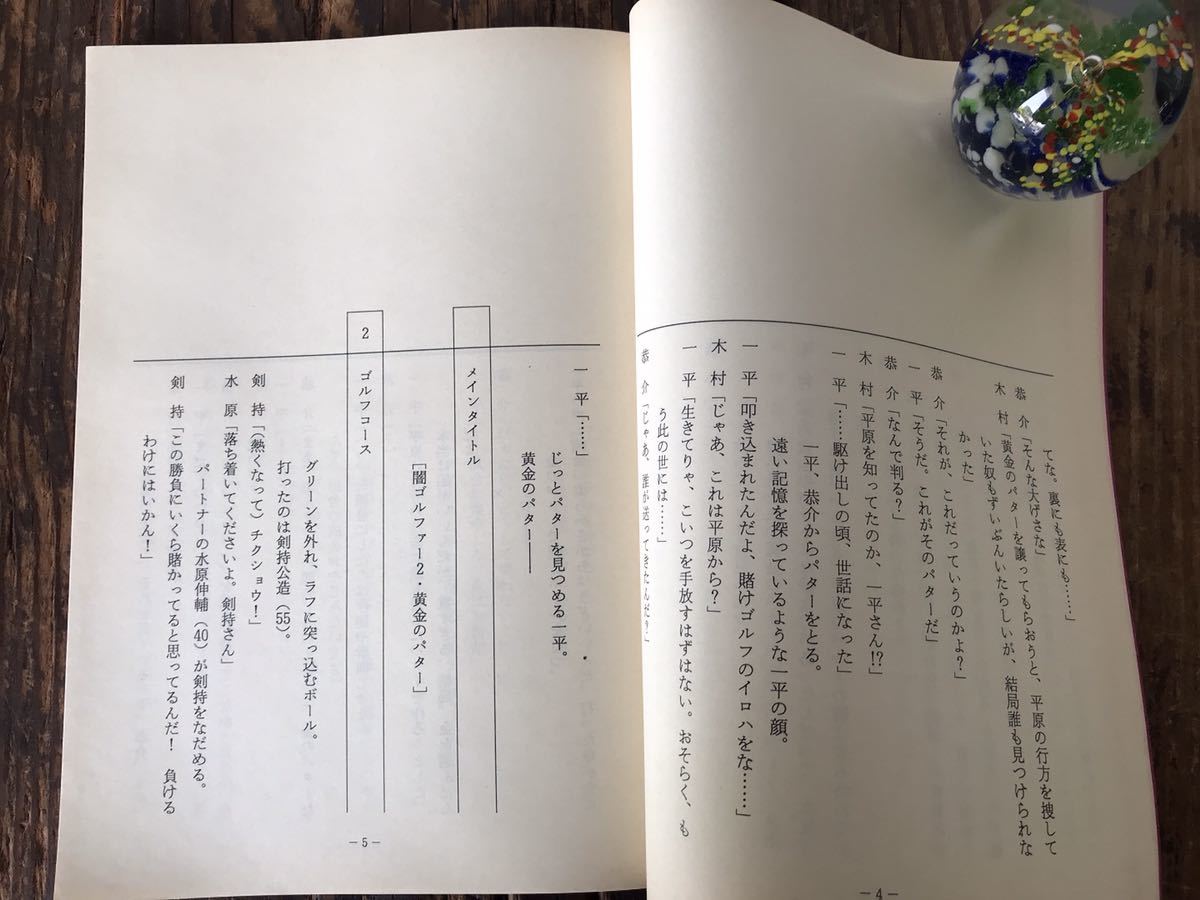 てな。裏にも表にも……」
恭　介「そんな大げさな」
木　村「黄金のパターを譲ってもらおうと、平原の行方を捜して
いた奴もずいぶんいたらしいが、結局誰も見つけられな
かった」
恭　介「それが、これだっていうのかよ？」
一　平「そうだ。これがそのパターだ」
恭　介「なんで判る？」
木　村「平原を知ってたのか、一平さん!?」
一　平「……駆け出しの頃、世話になった」
一平、恭介からパターをとる。
遠い記憶を探っているような一平の顔。
一　平「叩き込まれたんだよ、賭けゴルフのイロハをな……」
木　村「じゃあ、これは平原から？」
一　平「生きてりゃ、こいつを手放すはずはない。おそらく、も
う此の世には……」
恭　介「じゃあ、誰が送ってきたんだ？」
－4－
一　平「……」
じっとパターを見つめる一平。
黄金のパター――
メインタイトル
［闇ゴルファー2・黄金のパター］
2　ゴルフコース
グリーンを外れ、ラフに突っ込むボール。
打ったのは剣持公造（55）。
剣　持「（熱くなって）チクショウ！」
水　原「落ち着いてくださいよ。剣持さん」
パートナーの水原伸輔（40）が剣持をなだめる。
剣　持「この勝負にいくら賭かってると思ってるんだ！　負ける
わけにはいかん！」
－5－